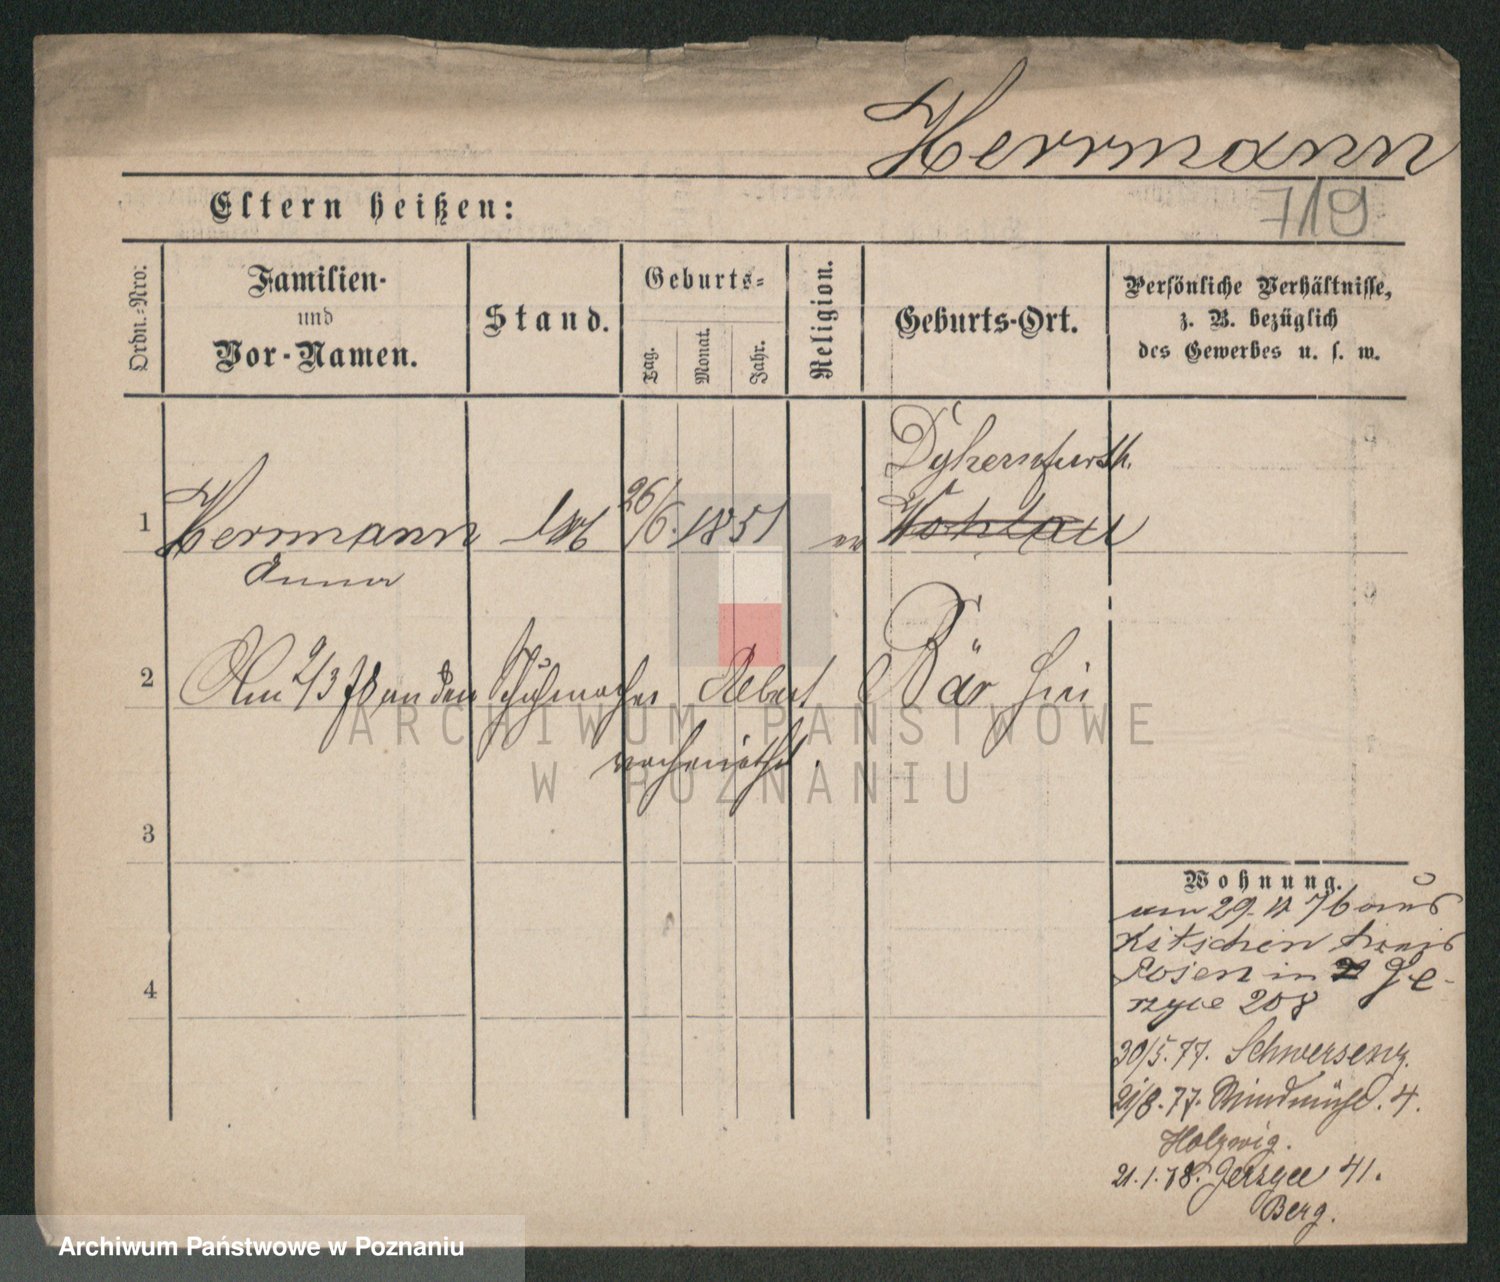 Herrmann
719
Eltern heißen:
Ordn.-Nro.
Familien-
und
Vor-Namen.
Stand.
Geburts-
Tag.
Monat.
Jahr.
Religion.
Geburts-Ort.
Persönliche Verhältnisse,
z. B. bezüglich
des Gewerbes u. s. w.
Dyhernfurth.
1 Herrmann 26/6. 1851 ev Wohlau
Anna
2 Am 2/3 78 an den Schuhmacher Robert Bär hier
verheirathet.
3
4
Wohnung.
am 29. 11 76 aus
Kitschin Kreis
Posen in Je-
rzyce 208
30/5. 77. Schwersenz.
21/8. 77. Windmühl. 4.
Holzwig.
21. 1. 78. Jerzyce 41.
Berg.
ARCHIWUM PAŃSTWOWE
W POZNANIU
Archiwum Państwowe w Poznaniu